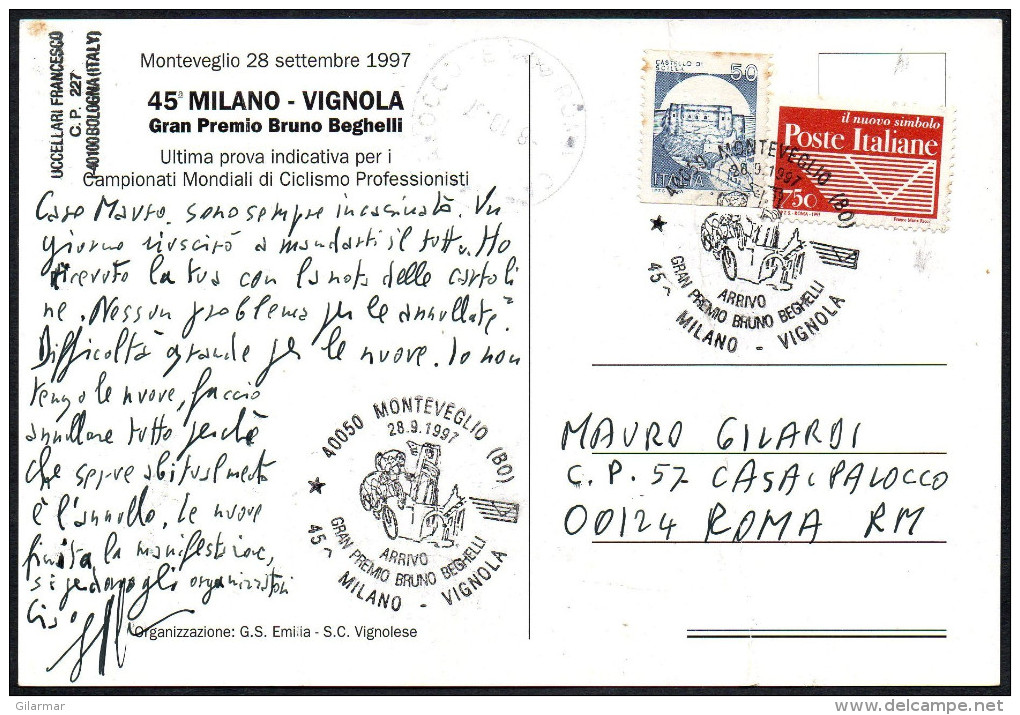 UCCELLARI FRANCESCO
C. P. 227
40100 BOLOGNA (ITALY)
Monteveglio 28 settembre 1997
45ª MILANO - VIGNOLA
Gran Premio Bruno Beghelli
Ultima prova indicativa per i
Campionati Mondiali di Ciclismo Professionisti
Caro Mauro, sono sempre incasinato. Un
giorno riuscirò a mandarti il tutto. Ho
ricevuto la tua con la nota delle cartoli
ne. Nessun problema per le annullate.
Difficoltà grande per le nuove. Io non
tengo le nuove, faccio
annullare tutto perché
che serve abitualmente
è l'annullo. Le nuove
finita la manifestazione,
gli organizzatori
Ciao
Organizzazione: G.S. Emilia - S.C. Vignolese
40050 MONTEVEGLIO (BO)
28.9.1997
ARRIVO
GRAN PREMIO BRUNO BEGHELLI
45^ MILANO - VIGNOLA
CASTELLO DI
SCILLA
50
ITALIA
il nuovo simbolo
Poste Italiane
750
I.P.Z.S. - ROMA - 1997
40050 MONTEVEGLIO (BO)
28.9.1997
ARRIVO
GRAN PREMIO BRUNO BEGHELLI
45^ MILANO - VIGNOLA
MAURO GILARDI
C.P. 57 CASAL PALOCCO
00124 ROMA RM
Gilarmar
delcampe.net